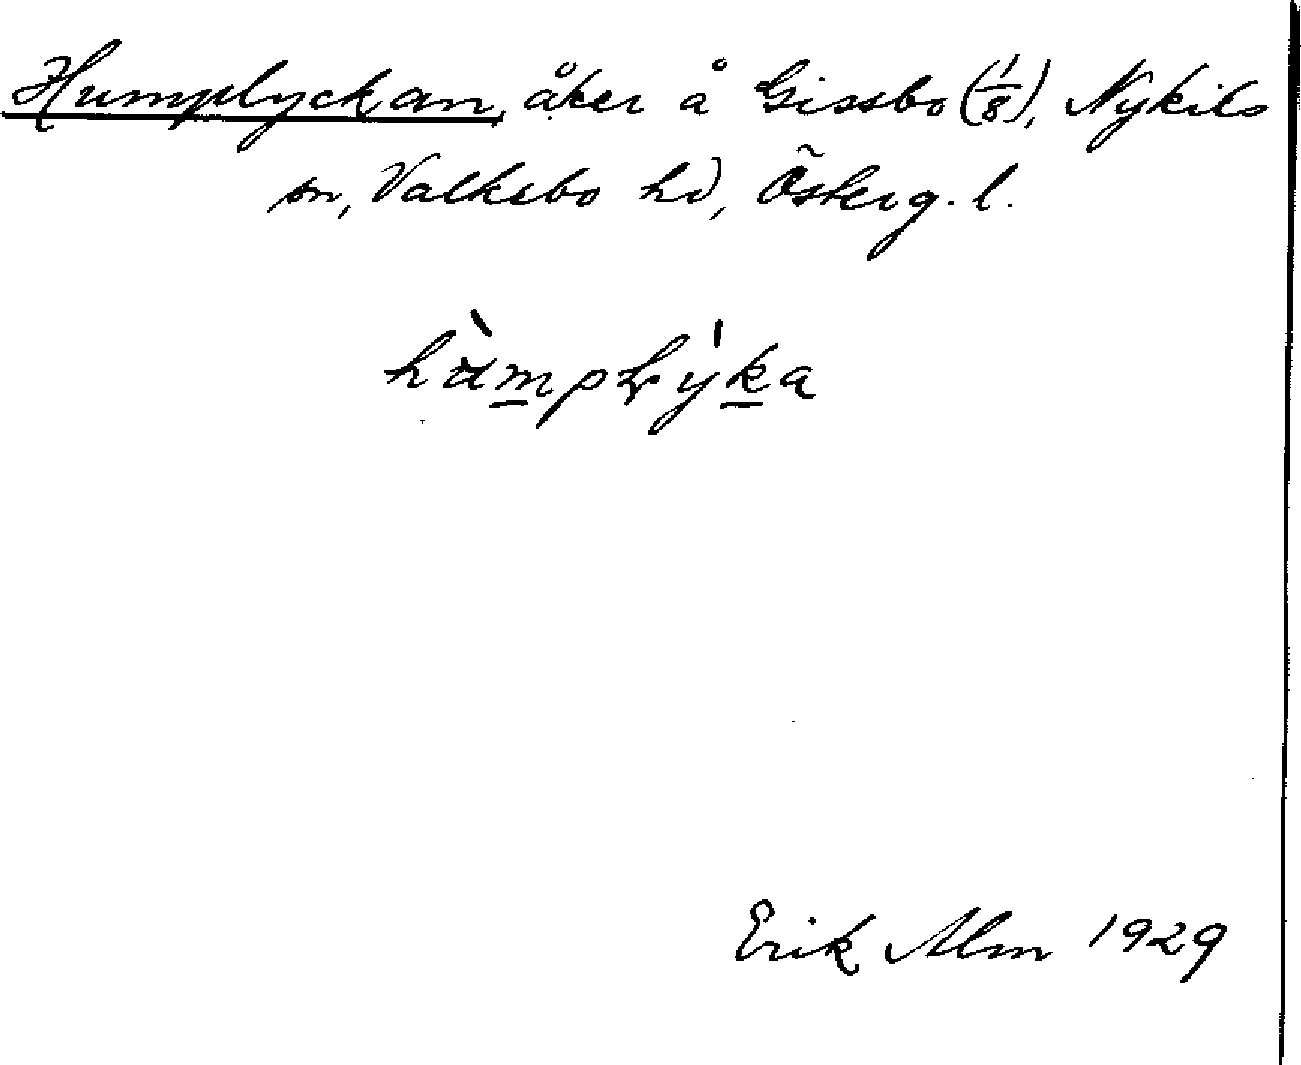 Humplyckan, åker å Gissbo (1/8), Nykils
sn, Valkebo hd, Österg. l.
hùmplýka
Erik Alm 1929